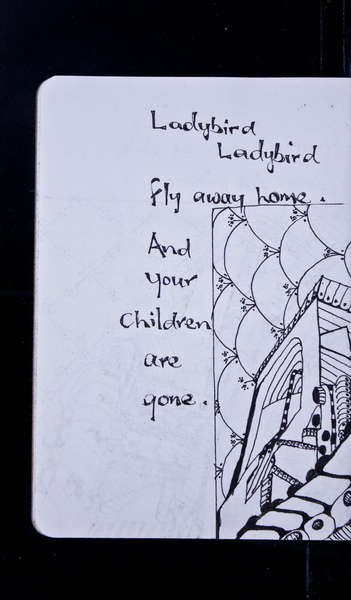 Ladybird
Ladybird
Fly away home.
And
your
Children
are
gone.